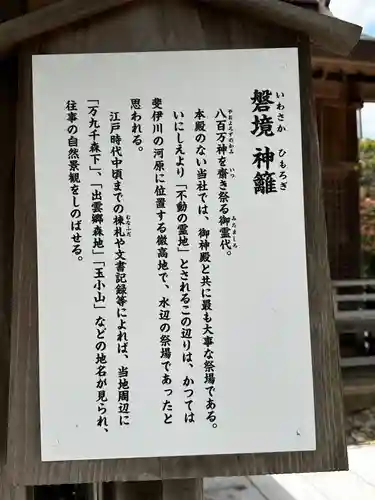 磐境 神籬
いわさか ひもろぎ
八百万神を齋き祭る御靈代。
やおよろずのかみ いつ みたましろ
本殿のない当社では、御神殿と共に最も大事な祭場である。
いにしえより「不動の霊地」とされるこの辺りは、かつては
斐伊川の河原に位置する微高地で、水辺の祭場であったと
思われる。
江戸時代中頃までの棟札や文書記録等によれば、当地周辺に
むなふだ
「万九千森下」、「出雲郷森地」「玉小山」などの地名が見られ、
往事の自然景観をしのばせる。